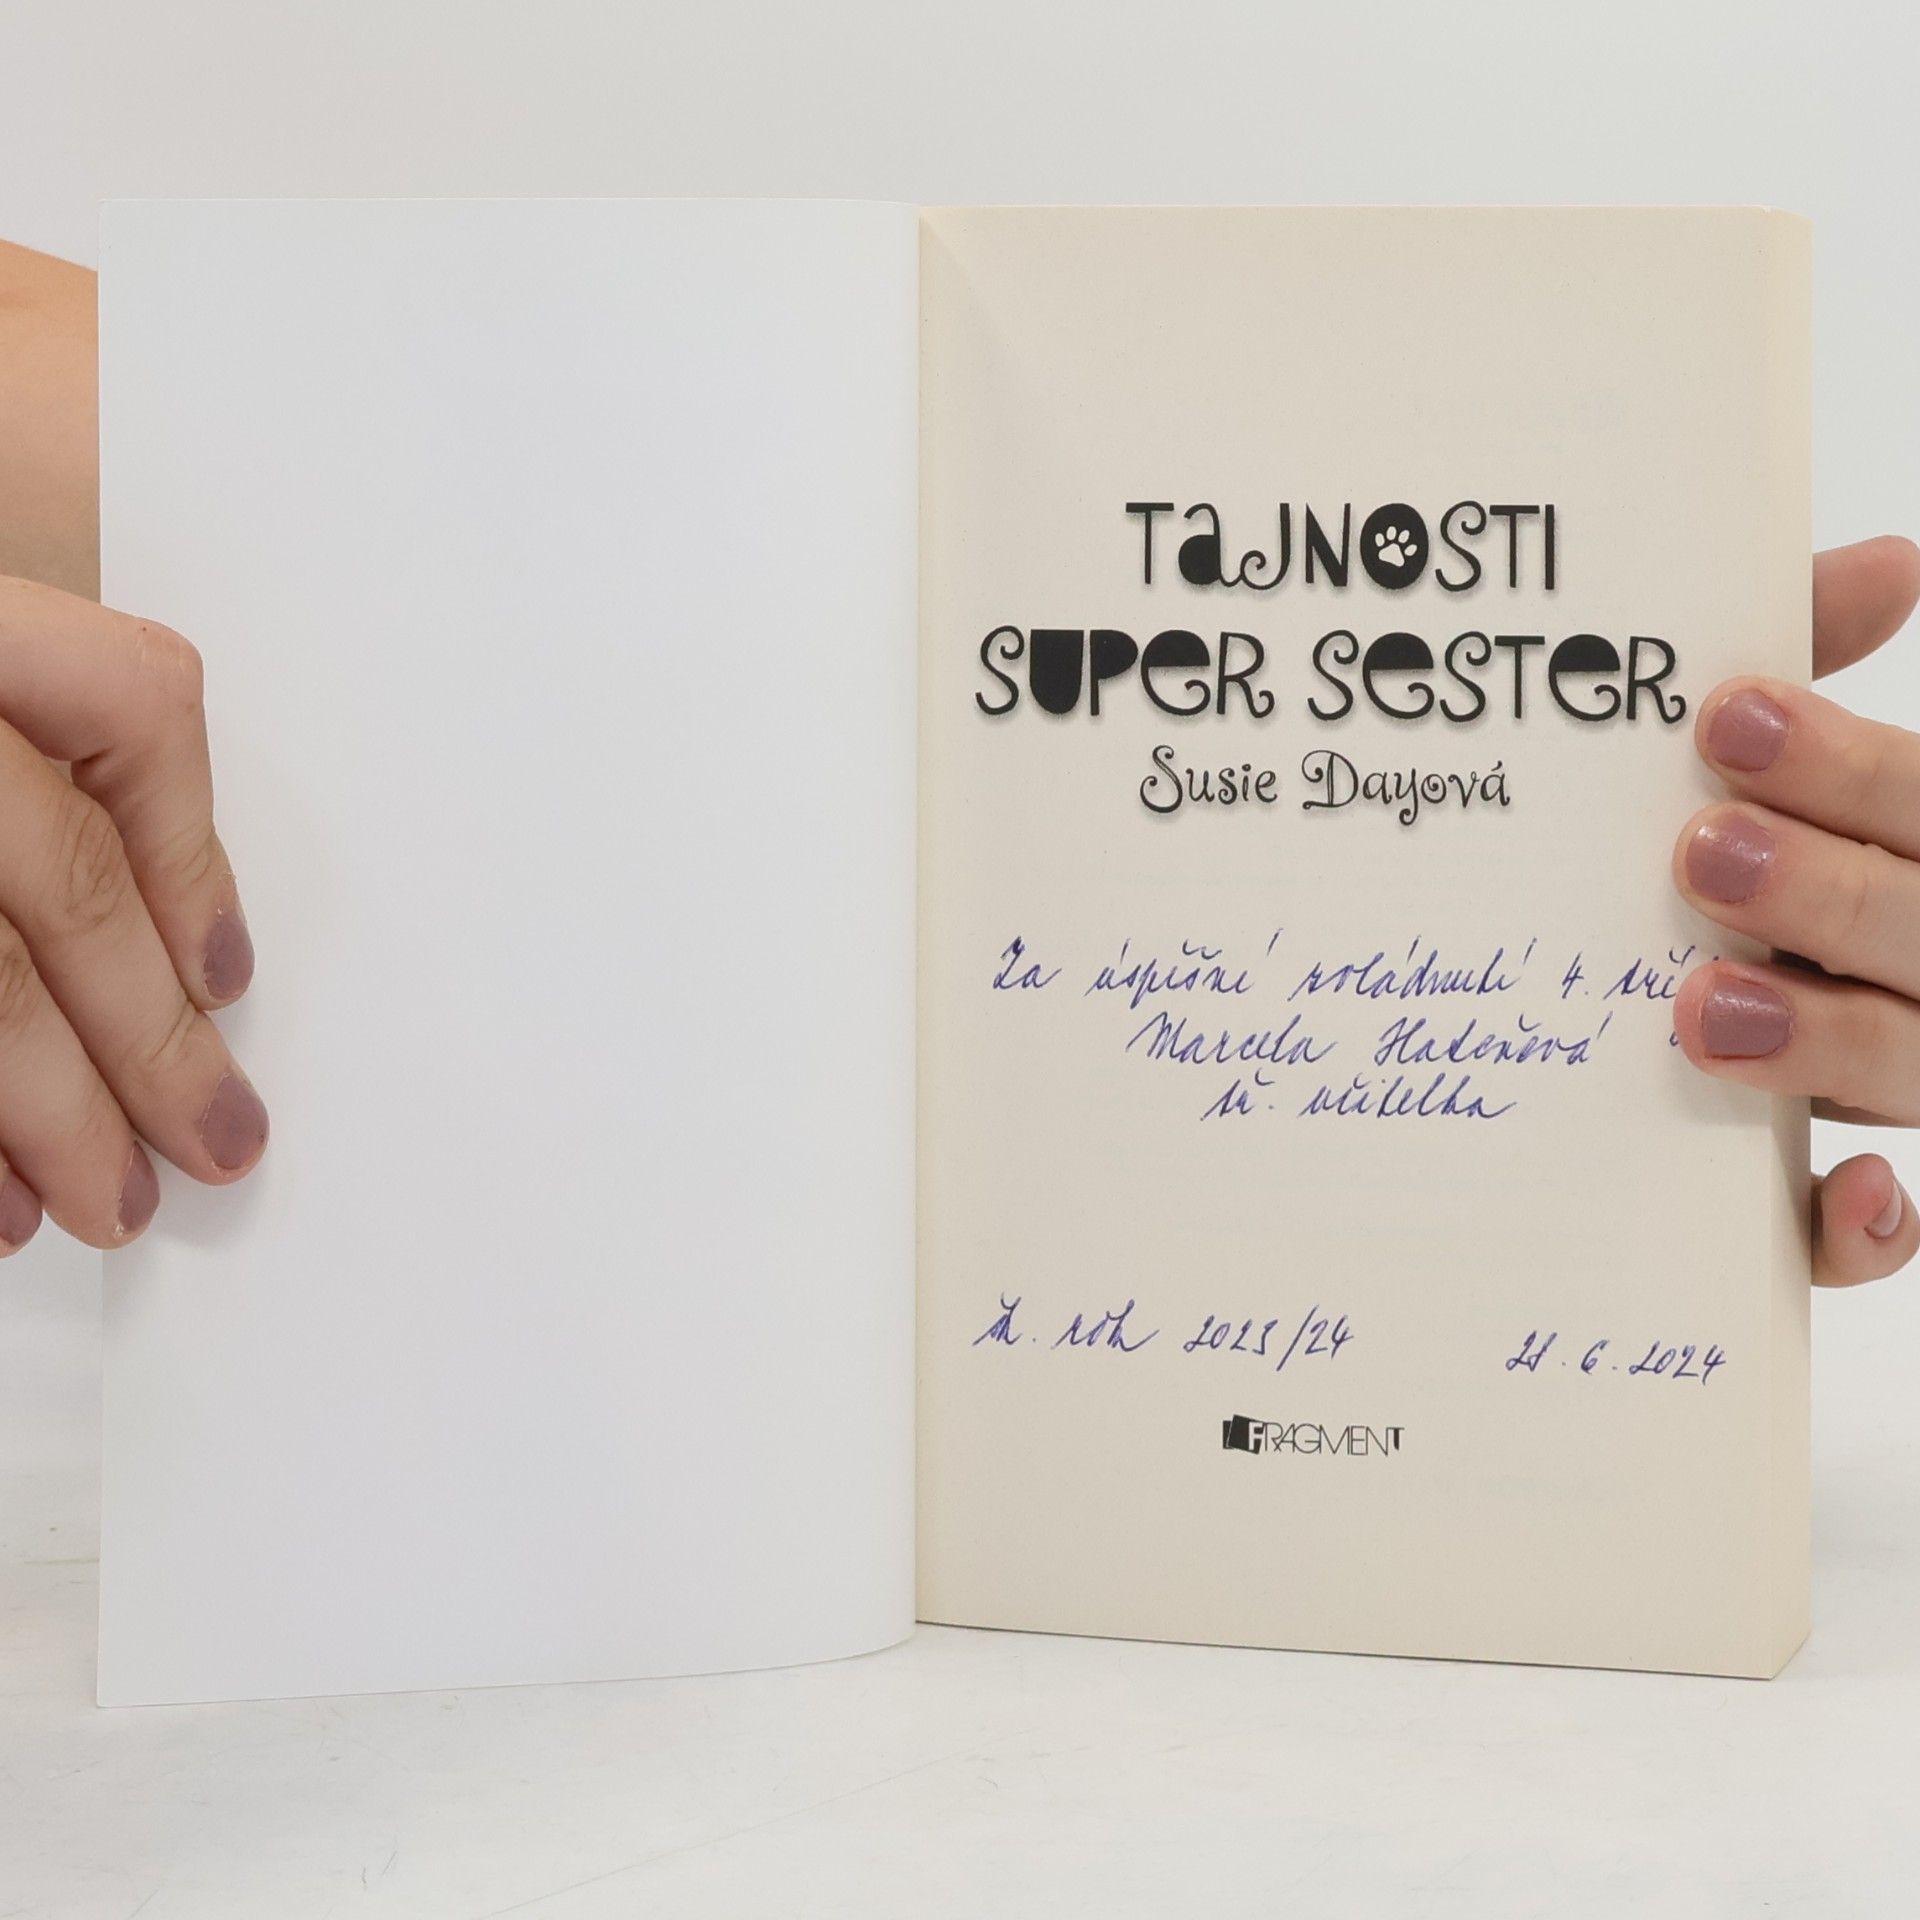 TAJNOSTI
SUPER SESTER
Susie Dayová
Za úspěšné zvládnutí 4. tří
Marcela
tř. učitelka
šk. rok 2023/24
28. 6. 2024
FRAGMENT